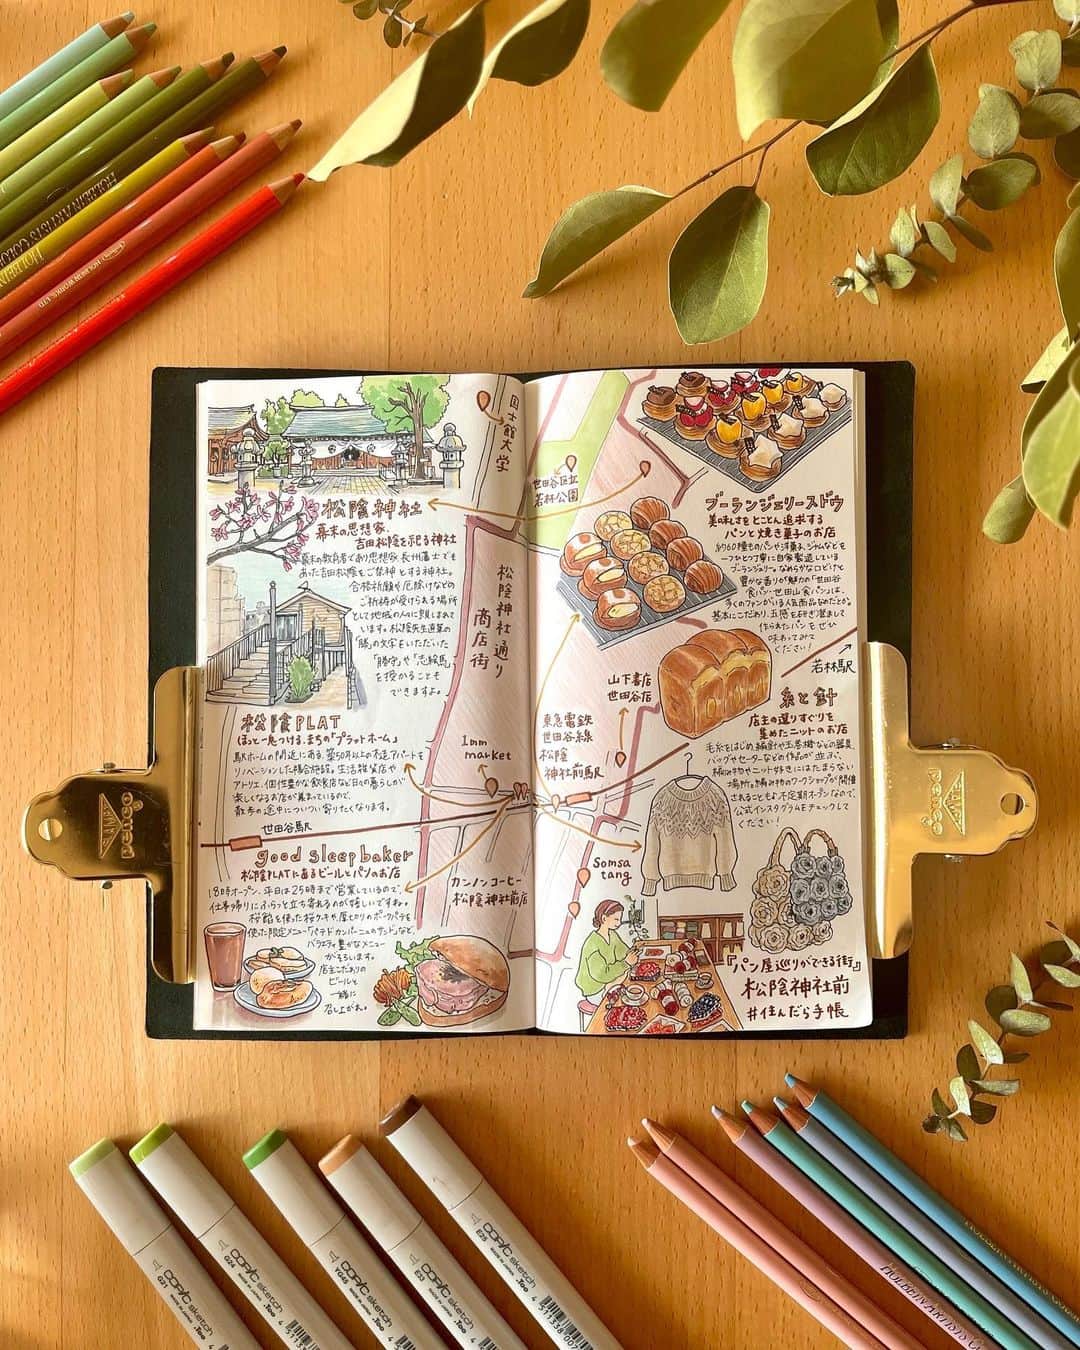 HOLBEIN ARTISTS' COLO
HOLBEIN WORKS, LTD.
国士舘大学
世田谷区立
若林公園
松陰神社
幕末の思想家、
吉田松陰を祀る神社
幕末の教育者であり思想家、長州藩士でも
あった吉田松陰をご祭神とする神社。
合格祈願や厄除けなどの
ご祈祷が受けられる場所
として地域の人に親しまれて
います。松陰先生直筆の
「勝」の文字をいただいた
「勝守」や「志絵馬」
を授かることも
できますよ。
松陰神社通り
商店街
松陰PLAT
ほっと一息つける、まちの「プラットホーム」
駅ホームの間近にある、築50年以上の木造アパートを
リノベーションした複合施設。生活雑貨店や
アトリエ、個性豊かな飲食店など日々の暮らしが
楽しくなるお店が集まっているので、
散歩の途中についつい寄りたくなります。
1mm
market
世田谷駅
good sleep baker
松陰PLATにあるビールとパンのお店
18時オープン、平日は25時まで営業しているので、
仕事帰りにふらっと立ち寄れるのが嬉しいですね。
桜餡を使った桜クッキーや、厚切りのポークパテを
使った限定メニュー「パテドカンパーニュのサンド」など、
バラエティ豊かなメニュー
がそろいます。
店主こだわりの
ビールと
一緒に
召し上がれ。
カンノンコーヒー
松陰神社前店
ブーランジェリースドウ
美味しさをとことん追求する
パンと焼き菓子のお店
約60種ものパンや洋菓子、ジャムなどを
一つひとつ丁寧に自家製造している
ブーランジェリー。なめらかな口どけと
豊かな香りが魅力の「世田谷
食パン・世田山食パン」は、
多くのファンがいる人気商品なのだとか。
基本にこだわり、五感を研ぎ澄まして
作られたパンをぜひ
味わってみて
ください!
若林駅
山下書店
世田谷店
東急電鉄
世田谷線
松陰
神社前駅
糸と針
店主の選りすぐりを
集めたニットのお店
毛糸をはじめ、編針や玉巻機などの器具、
バッグやセーターなどの作品が並ぶ、
編み物やニット好きにはたまらない
場所。編み物のワークショップが開催
されることも♪不定期オープンなので、
公式インスタグラムをチェックして
ください!
Somsa
tang
『パン屋巡りができる街』
松陰神社前
#住んだら手帳
penco
CLAMPY
penco
G21
COPIC sketch
MADE IN JAPAN
.Too
G24
COPIC sketch
MADE IN JAPAN
.Too
YG45
COPIC sketch
MADE IN JAPAN
.Too
COPIC sketch
MADE IN JAPAN
.Too
E25
COPIC sketch
MADE IN JAPAN
.Too
4 511338 007
HOLBEIN ARTISTS' CO